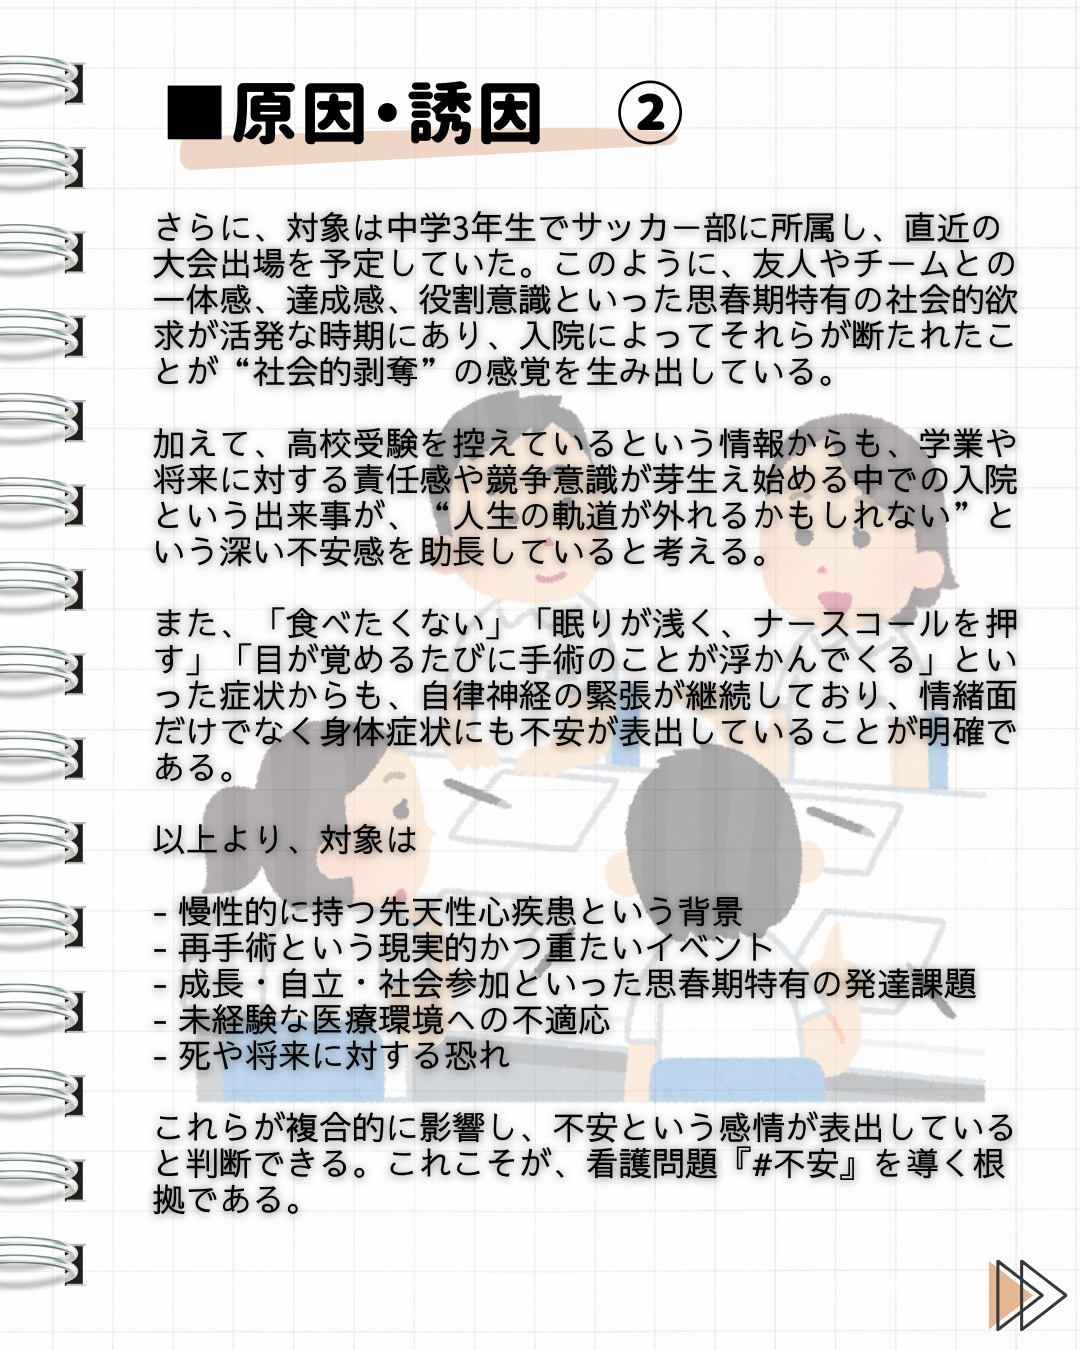 ■原因・誘因　②
さらに、対象は中学3年生でサッカー部に所属し、直近の
大会出場を予定していた。このように、友人やチームとの
一体感、達成感、役割意識といった思春期特有の社会的欲
求が活発な時期にあり、入院によってそれらが断たれたこ
とが“社会的剥奪”の感覚を生み出している。
加えて、高校受験を控えているという情報からも、学業や
将来に対する責任感や競争意識が芽生え始める中での入院
という出来事が、“人生の軌道が外れるかもしれない”と
いう深い不安感を助長していると考える。
また、「食べたくない」「眠りが浅く、ナースコールを押
す」「目が覚めるたびに手術のことが浮かんでくる」とい
った症状からも、自律神経の緊張が継続しており、情緒面
だけでなく身体症状にも不安が表出していることが明確で
ある。
以上より、対象は
- 慢性的に持つ先天性心疾患という背景
- 再手術という現実的かつ重たいイベント
- 成長・自立・社会参加といった思春期特有の発達課題
- 未経験な医療環境への不適応
- 死や将来に対する恐れ
これらが複合的に影響し、不安という感情が表出している
と判断できる。これこそが、看護問題『#不安』を導く根
拠である。